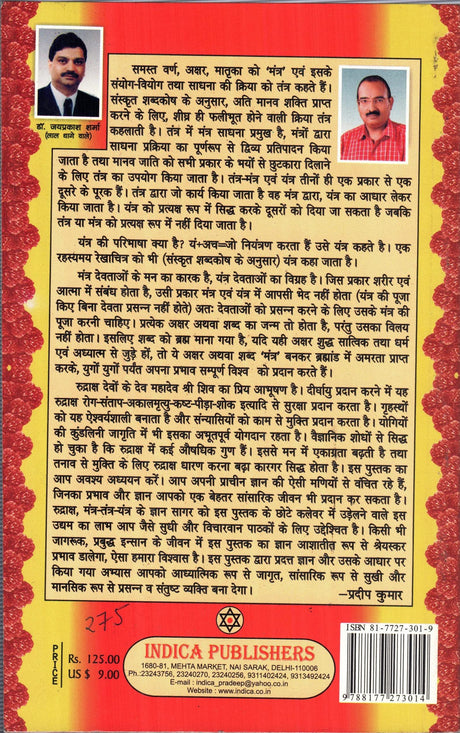 समस्त वर्ण, अक्षर, मातृका को 'मंत्र' एवं इसके
संयोग-वियोग तथा साधना की क्रिया को तंत्र कहते हैं।
संस्कृत शब्दकोष के अनुसार, अति मानव शक्ति प्राप्त
करने के लिए, शीघ्र ही फलीभूत होने वाली क्रिया तंत्र
कहलाती है। तंत्र में मंत्र साधना प्रमुख है, मंत्रों द्वारा
साधना प्रक्रिया का पूर्णरूप से द्विव्य प्रतिपादन किया
जाता है तथा मानव जाति को सभी प्रकार के भयों से छुटकारा दिलाने
के लिए तंत्र का उपयोग किया जाता है। तंत्र-मंत्र एवं यंत्र तीनों ही एक प्रकार से एक
दूसरे के पूरक हैं। तंत्र द्वारा जो कार्य किया जाता है वह मंत्र द्वारा, यंत्र का आधार लेकर
किया जाता है। यंत्र को प्रत्यक्ष रूप में सिद्ध करके दूसरों को दिया जा सकता है जबकि
तंत्र या मंत्र को प्रत्यक्ष रूप में नहीं दिया जाता।
यंत्र की परिभाषा क्या है? यं+अच=जो नियंत्रण करता हैं उसे यंत्र कहते है। एक
रहस्यमय रेखाचित्र को भी (संस्कृत शब्दकोष के अनुसार) यंत्र कहा जाता है।
मंत्र देवताओं के मन का कारक है, यंत्र देवताओं का विग्रह है। जिस प्रकार शरीर एवं
आत्मा में संबंध होता है, उसी प्रकार मंत्र एवं यंत्र में आपसी भेद नहीं होता (यंत्र की पूजा
किए बिना देवता प्रसन्न नहीं होते) अतः देवताओं को प्रसन्न करने के लिए उसके मंत्र की
पूजा करनी चाहिए। प्रत्येक अक्षर अथवा शब्द का जन्म तो होता है, परंतु उसका विलय
नहीं होता। इसलिए शब्द को ब्रह्म माना गया है, यदि यही अक्षर शुद्ध सात्विक तथा धर्म
एवं अध्यात्म से जुड़े हों, तो ये अक्षर अथवा शब्द 'मंत्र' बनकर ब्रह्मांड में अमरता प्राप्त
करके, युगों युगों पर्यंत अपना प्रभाव सम्पूर्ण विश्व को प्रदान करते हैं।
रुद्राक्ष देवों के देव महादेव श्री शिव का प्रिय आभूषण है। दीर्घायु प्रदान करने में यह
रुद्राक्ष रोग-संताप-अकालमृत्यु-कष्ट-पीड़ा-शोक इत्यादि से सुरक्षा प्रदान करता है। गृहस्थों
को यह ऐश्वर्यशाली बनाता है और संन्यासियों को काम से मुक्ति प्रदान करता है। योगियों
की कुंडलिनी जागृति में भी इसका अभूतपूर्व योगदान रहता है। वैज्ञानिक शोधों से सिद्ध
हो चुका है कि रुद्राक्ष में कई औषधिक गुण हैं। इससे मन में एकाग्रता बढ़ती है तथा
तनाव से मुक्ति के लिए रुद्राक्ष धारण करना बढ़ा कारगर सिद्ध होता है। इस पुस्तक का
आप अवश्य अध्ययन करें। आप अपनी प्राचीन ज्ञान की ऐसी मणियों से वंचित रहे हैं,
जिनका प्रभाव और ज्ञान आपको एक बेहतर सांसारिक जीवन भी प्रदान कर सकता है।
रुद्राक्ष, मंत्र-तंत्र-यंत्र के ज्ञान सागर को इस पुस्तक के छोटे कलेवर में उड़ेलने वाले इस
उद्यम का लाभ आप जैसे सुधी और विचारवान पाठकों के लिए उद्देश्यित है। किसी भी
जागरूक, प्रबुद्ध इन्सान के जीवन में इस पुस्तक का ज्ञान आशातीत रूप से श्रेयस्कर
प्रभाव डालेगा, ऐसा हमारा विश्वास है। इस पुस्तक द्वारा प्रदत्त ज्ञान और उसके आधार पर
किया गया अभ्यास आपको आध्यात्मिक रूप से जागृत, सांसारिक रूप से सुखी और
मानसिक रूप से प्रसन्न व संतुष्ट व्यक्ति बना देगा।
–प्रदीप कुमार
डॉ. जयप्रकाश शर्मा
(लाल धागे वाले)
275
PRICE
Rs. 125.00
US $ 9.00
INDICA PUBLISHERS
1680-81, MEHTA MARKET, NAI SARAK, DELHI-110006
Ph.:23243756, 23240270, 23240256, 9311402424, 9313492424
E-mail : indica_pradeep@yahoo.co.in
Website : www.indica.co.in
ISBN 81-7727-301-9
9 788177 273014